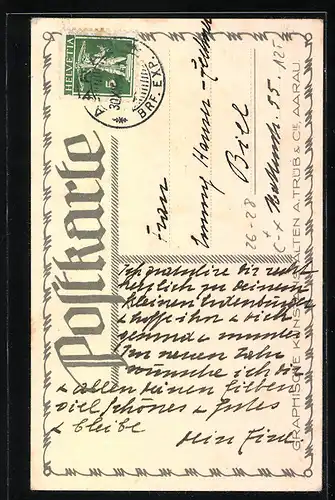 HELVETIA
5
30.
BRF. EXP.
Postkarte
Frau
Emmy
Biel
26-28
55
125
ich gratuliere dir recht
herzlich zu deinem
kleinen
& hoffe ihn & dich
gesund & munter
Im neuen Jahr
wünsche ich dir
& allen deinen Lieben
viel Schönes & Gutes
& bleibe
dein
GRAPHISCHE KUNSTANSTALTEN A. TRÜB & CIE. AARAU.